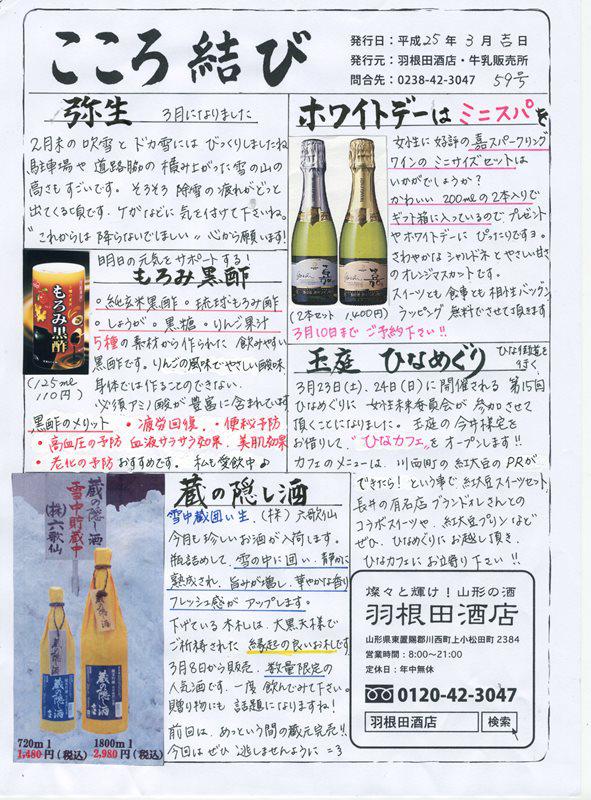 こころ結び
発行日：平成25年3月吉日
発行元：羽根田酒店・牛乳販売所
問合先：0238-42-3047 59号
弥生 3月になりました
2月末の吹雪とドカ雪にはびっくりしましたね
駐車場や道路脇の積み上がった雪の山の
高さもすごいです。そろそろ除雪の疲れがどっと
出てくる頃です。ケガなどに気を付けて下さいね。
"これからは降らないでほしい"心から願います!
明日の元気をサポートする!
もろみ黒酢
・純玄米黒酢・琉球もろみ酢
・しょうが・黒糖・りんご果汁
5種の素材から作られた飲みやすい
黒酢です。りんごの風味でやさしい酸味
身体では作ることのできない
必須アミノ酸が豊富に含まれています
もろみ黒酢
(125ml
110円)
黒酢のメリット・疲労回復・便秘予防
・高血圧の予防 血液サラサラ効果・美肌効果
・老化の予防 おすすめです。私も愛飲中♪
ホワイトデーはミニスパを
女性に好評の嘉スパークリング
ワインのミニサイズセットは
いかがでしょうか?
かわいい200mlの2本入りで
ギフト箱に入っているのでプレゼント
やホワイトデーにぴったりですョ。
さわやかなシャルドネとやさしい甘さ
のオレンジマスカットです。
スイーツとも食事とも相性バツグン
(2本セット 1,400円) ラッピング無料でさせて頂きます
3月10日までご予約下さい!!
玉庭 ひなめぐり
3月23日(土)、24日(日)に開催される第15回
ひなめぐりに女性未来委員会が参加させて
頂くことになりました。玉庭の今井様宅を
お借りして、"ひなカフェ"をオープンします!!
カフェのメニューは、川西町の紅大豆のPRが
できたら!という事で紅大豆スイーツセット、
長井の有名店ブランドォレさんとの
コラボスイーツや、紅大豆プリンなど
ぜひ、ひなめぐりにお越し頂き、
ひなカフェにお立寄り下さい!!
蔵の隠し酒
雪中蔵囲い生 (株)六歌仙
今月も珍しいお酒が入荷します。
瓶詰めして、雪の中に囲い、静かに
熟成され、旨みが増し、華やかな香り
フレッシュ感がアップします。
下げている木札は、大黒天様で
ご祈祷された縁起の良いお札です
3月8日から販売、数量限定の
人気酒です。一度飲んでみて下さい。
贈り物にも話題になりますね!
前回は、あっという間の蔵元完売!!
今回はぜひ逃しませんように=3
蔵の隠し酒
雪中貯蔵中
(株)六歌仙
蔵の隠し酒
蔵の隠し酒
720ml
1,480円(税込)
1800ml
2,980円(税込)
燦々と輝け!山形の酒
羽根田酒店
山形県東置賜郡川西町上小松田町2384
営業時間：8:00～21:00
定休日：年中無休
0120-42-3047
羽根田酒店 検索